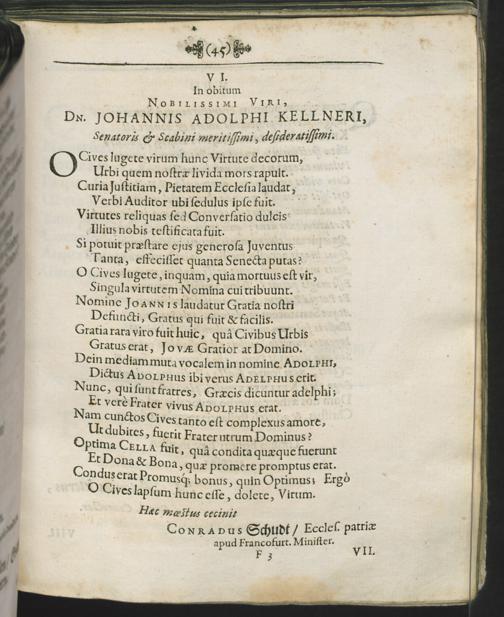 (45)
VI.
In obitum
NOBILISSIMI VIRI,
DN. JOHANNIS ADOLPHI KELLNERI,
Senatoris & Scabini meritiſſimi, deſideratiſſimi.
O Cives lugete virum hunc Virtute decorum,
Urbi quem noſtræ livida mors rapuit.
Curia Juſtitiam, Pietatem Eccleſia laudat,
Verbi Auditor ubi ſedulus ipſe fuit.
Virtutes reliquas ſed Converſatio dulcis
Illius nobis teſtificata fuit.
Si potuit præſtare ejus generoſa Juventus
Tanta, effeciſſet quanta Senecta putas?
O Cives lugete, inquam, quia mortuus eſt vir,
Singula virtutem Nomina cui tribuunt.
Nomine JOANNIS laudatur Gratia noſtri
Defuncti, Gratus qui fuit & facilis.
Gratia rara viro fuit huic, quâ Civibus Urbis
Gratus erat, JOVÆ Gratior at Domino.
Dein mediam muta vocalem in nomine ADOLPHI,
Dictus ADOLPHUS ibi verus ADELPHUS erit.
Nunc, qui ſunt fratres, Græcis dicuntur adelphi;
Et verè Frater vivus ADOLPHUS erat.
Nam cunctos Cives tanto eſt complexus amore,
Ut dubites, fuerit Frater utrum Dominus?
Optima CELLA fuit, quâ condita quæque fuerunt
Et Dona & Bona, quæ promere promptus erat.
Condus erat Promusq; bonus, quin Optimus; Ergò
O Cives lapſum hunc eſſe, dolete, Virum.
Hæc mœſtus cecinit
CONRADUS Schudt / Eccleſ. patriæ
apud Francofurt. Miniſter.
F 3
VII.